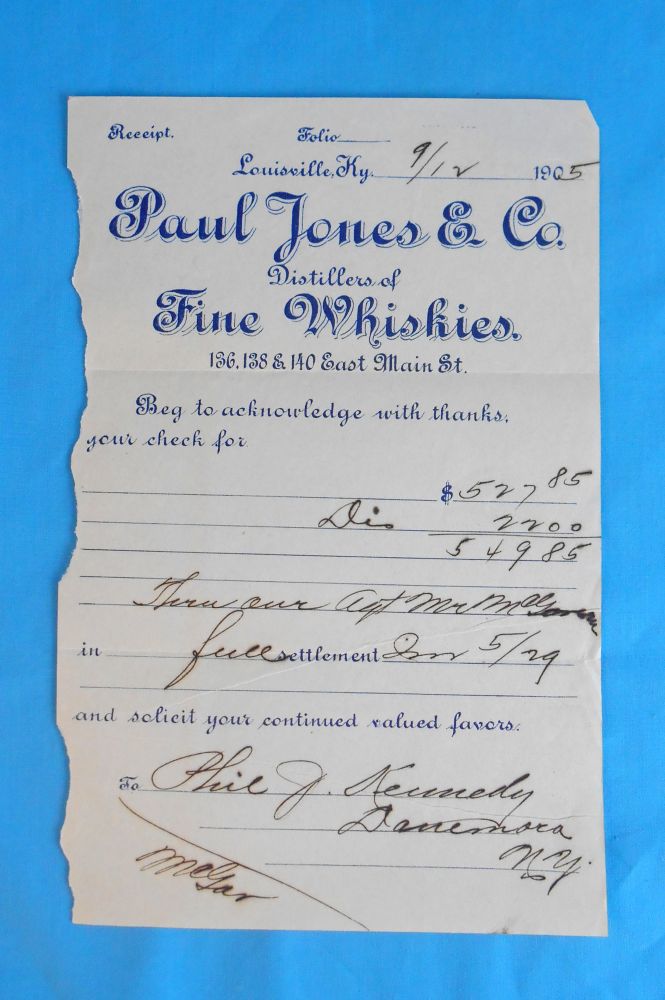 Receipt. Folio
Louisville, Ky. 9/12 1905
Paul Jones & Co.
Distillers of
Fine Whiskies.
136, 138 & 140 East Main St.
Beg to acknowledge with thanks,
your check for
$ 527 85
Dis 22 00
549 85
Thru our Agt Mr McGowan
in full settlement Inv 5/29
and solicit your continued valued favors.
To Phil J. Kennedy
Dannemora
N.Y.
McGow